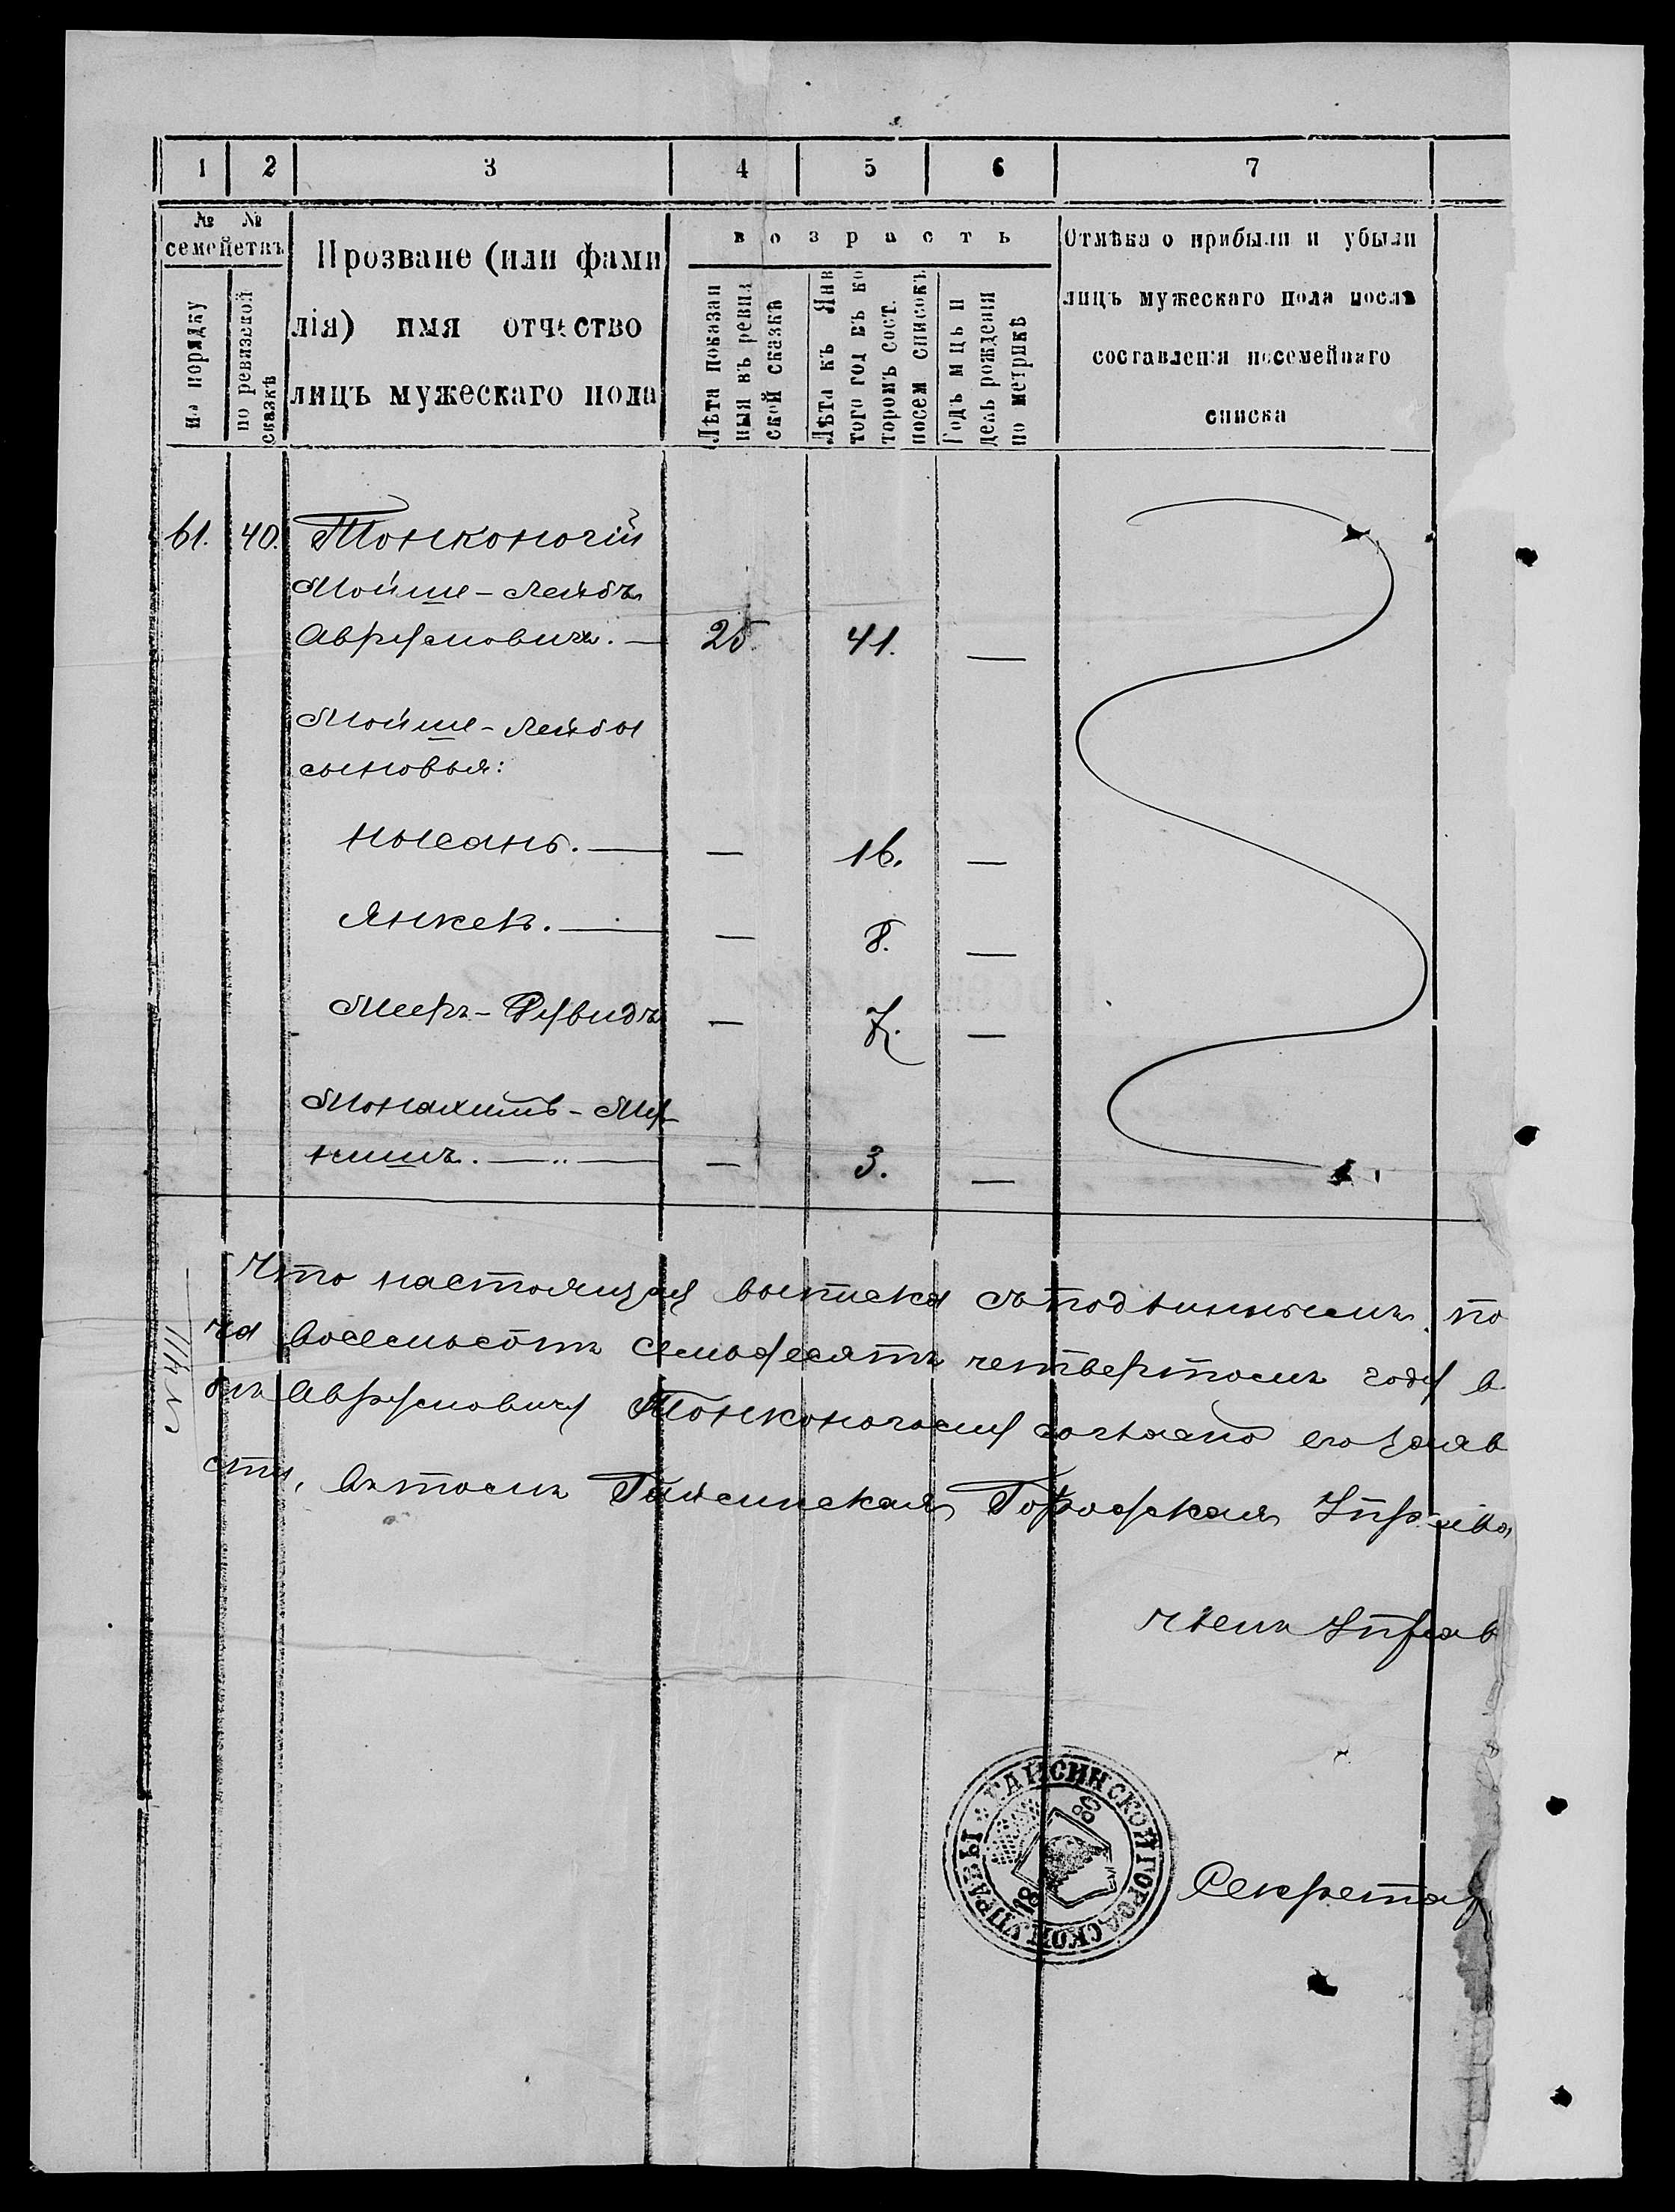 1 2 3 4 5 6 7
№ № семействъ
по порядку
по ревизской сказкѣ
Прозване (или фами
лія) имя отчество
лицъ мужескаго пола
возрастъ
Лѣта показан
ныя въ ревиз
ской сказкѣ
Лѣта къ Янв
того год въ ко
торомъ сост.
посем списокъ
Годъ мцъ и
день рожденія
по метрикѣ
Отмѣка о прибыли и убыли
лицъ мужескаго пола послѣ
составленія посемейнаго
списка
61. 40. Тонконогій
Мойше-Лейбъ
Аврумовичъ. — 25. 41. —
Мойше-Лейбы
сыновья:
Нысанъ. — — 16. —
Янкель. — — 8. —
Мееръ-Дувидъ — 7. —
Монахимъ-Му-
нишъ. — „ — — 3. —
Что настоящая выписка съ подлиннымъ по
ча восемьсотъ семьдесятъ четвертомъ году в
бъ Аврумовичу Тонконогому согласно его заяв
сти, въ томъ Гайсинская Городская Управа
№ 411
Членъ Управ
ГАЙСИНСКОЙ ГОРОДСКОЙ УПРАВЫ *
18
Секретар